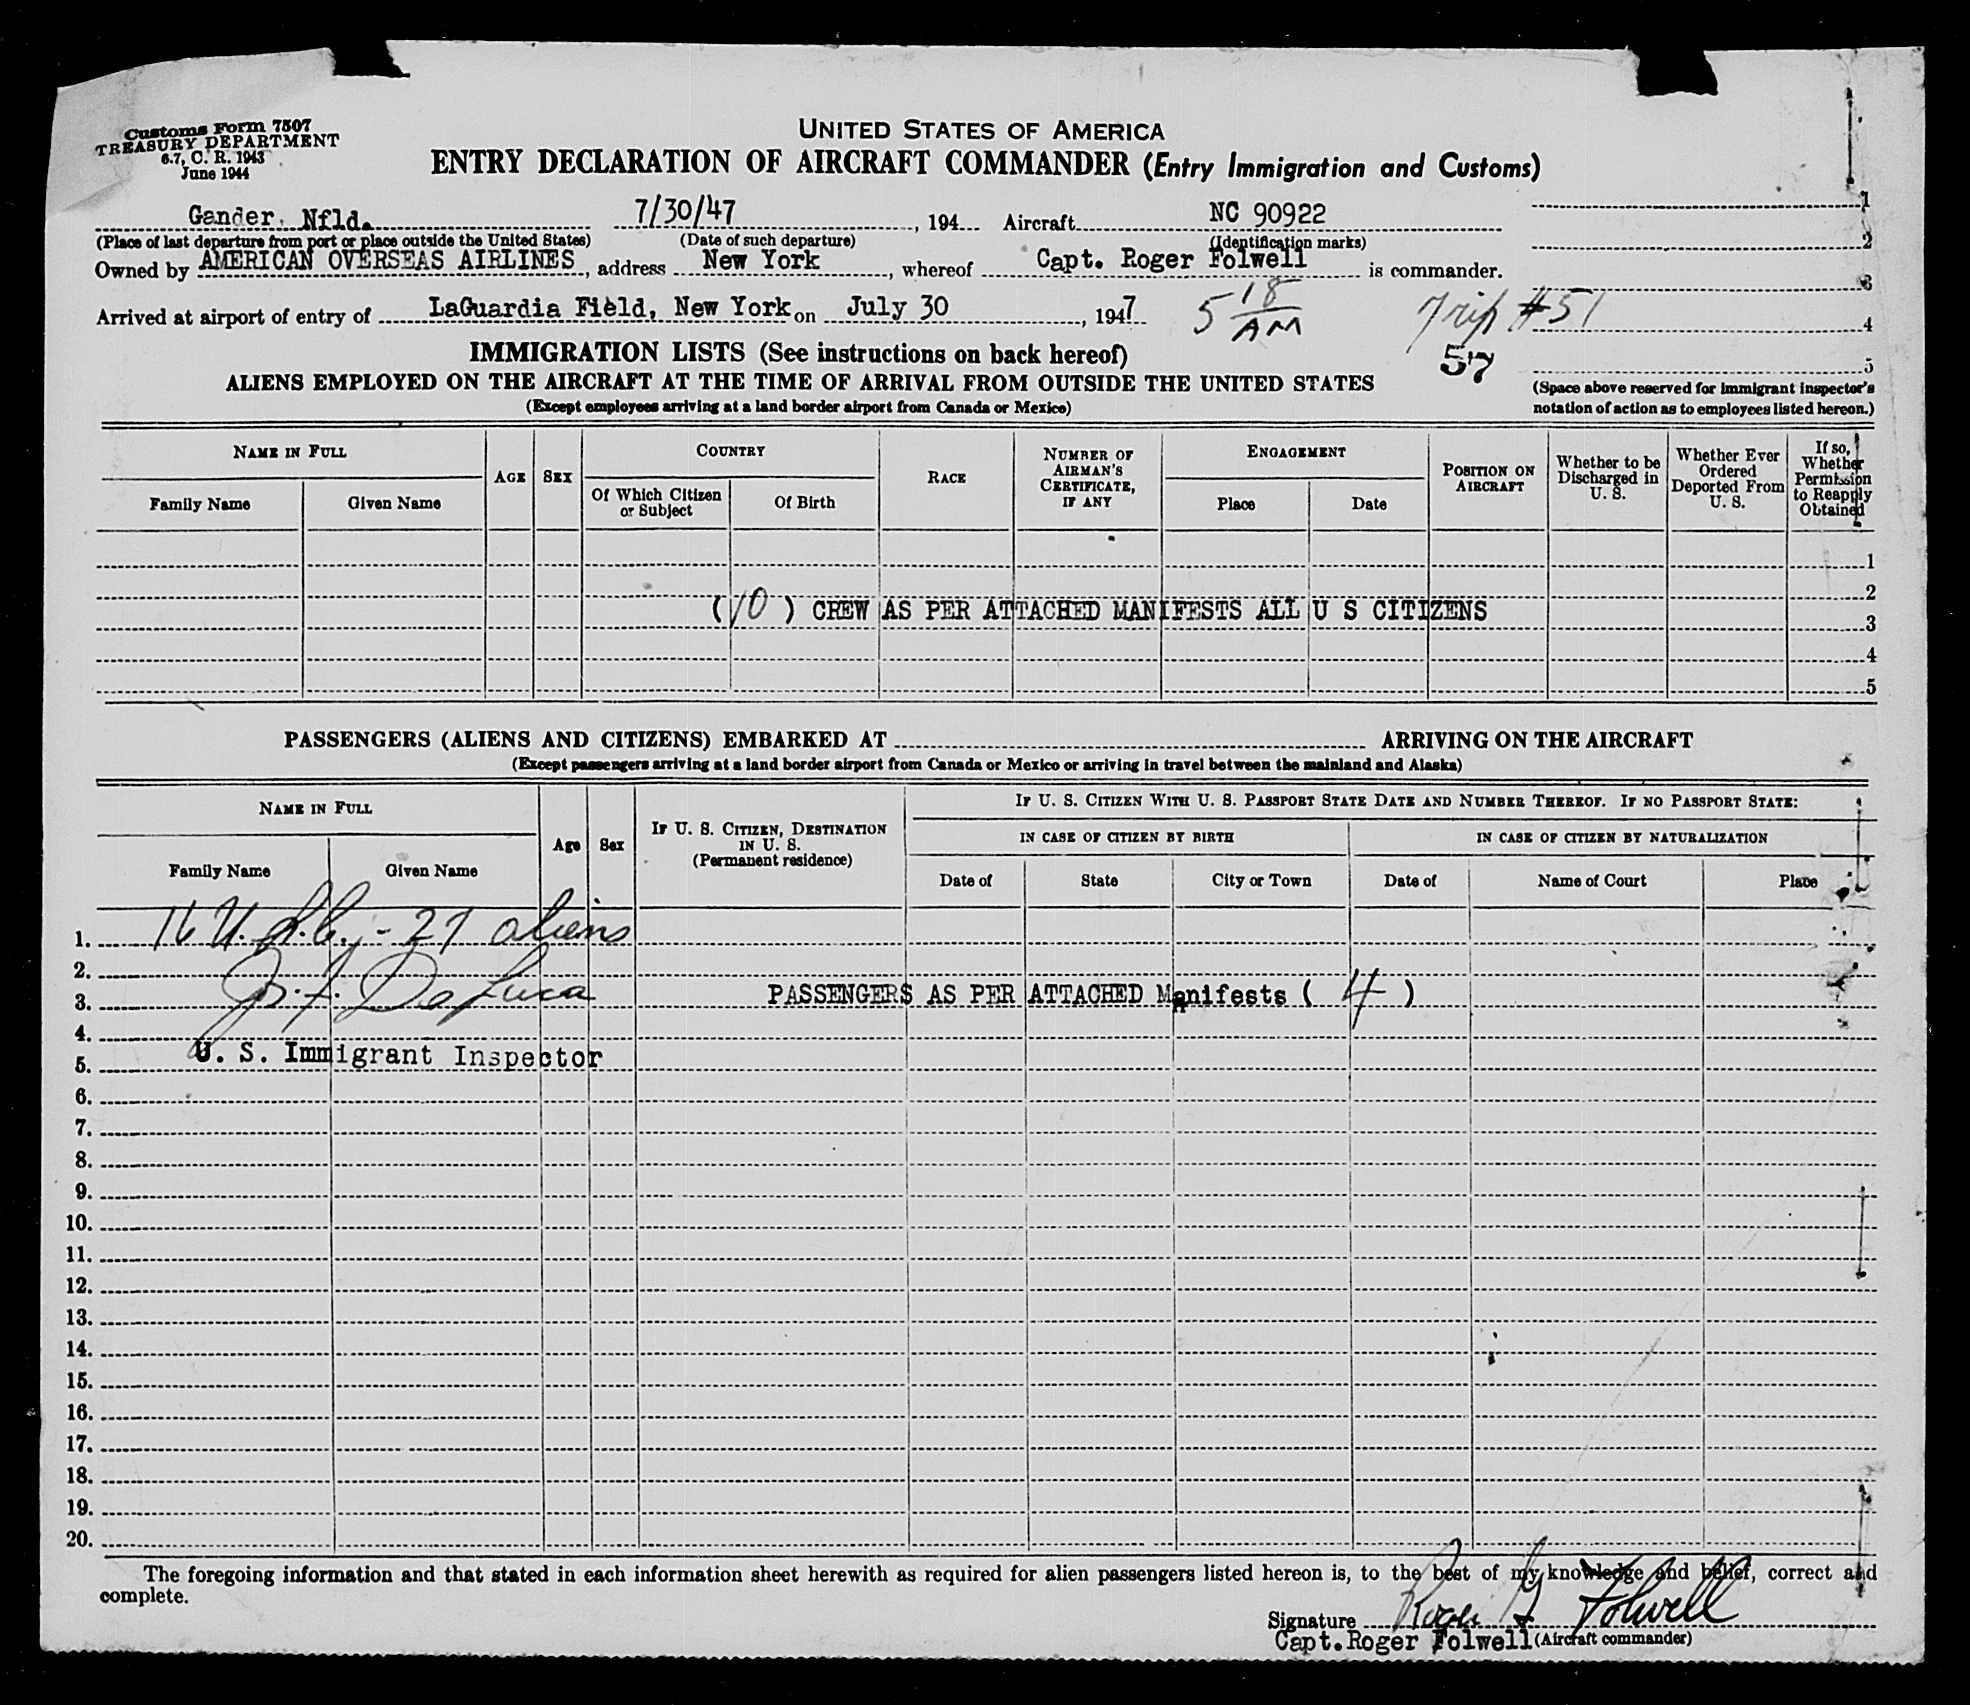 Customs Form 7507
TREASURY DEPARTMENT
6.7, C. R. 1943
June 1944
UNITED STATES OF AMERICA
ENTRY DECLARATION OF AIRCRAFT COMMANDER (Entry Immigration and Customs)
Gander, Nfld. 7/30/47, 194 Aircraft NC 90922 1
(Place of last departure from port or place outside the United States) (Date of such departure) (Identification marks) 2
Owned by AMERICAN OVERSEAS AIRLINES, address New York, whereof Capt. Roger Folwell is commander.
3
Arrived at airport of entry of LaGuardia Field, New York on July 30, 1947 5 18 AM Trip #51 4
57 5
IMMIGRATION LISTS (See instructions on back hereof)
ALIENS EMPLOYED ON THE AIRCRAFT AT THE TIME OF ARRIVAL FROM OUTSIDE THE UNITED STATES
(Except employees arriving at a land border airport from Canada or Mexico)
(Space above reserved for immigrant inspector's
notation of action as to employees listed hereon.)
NAME IN FULL
Family Name Given Name
AGE SEX
COUNTRY
Of Which Citizen or Subject Of Birth
RACE
NUMBER OF AIRMAN'S CERTIFICATE, IF ANY
ENGAGEMENT
Place Date
POSITION ON AIRCRAFT
Whether to be Discharged in U. S.
Whether Ever Ordered Deported From U. S.
If so, Whether Permission to Reapply Obtained
1
2
(10) CREW AS PER ATTACHED MANIFESTS ALL U S CITIZENS
3
4
5
PASSENGERS (ALIENS AND CITIZENS) EMBARKED AT ARRIVING ON THE AIRCRAFT
(Except passengers arriving at a land border airport from Canada or Mexico or arriving in travel between the mainland and Alaska)
NAME IN FULL
Family Name Given Name
Age Sex
IF U. S. CITIZEN, DESTINATION IN U. S.
(Permanent residence)
IF U. S. CITIZEN WITH U. S. PASSPORT STATE DATE AND NUMBER THEREOF. IF NO PASSPORT STATE:
IN CASE OF CITIZEN BY BIRTH IN CASE OF CITIZEN BY NATURALIZATION
Date of State City or Town Date of Name of Court Place
1. 16 U.S.C. - 27 aliens
2.
3. De Luca PASSENGERS AS PER ATTACHED Manifests (4)
4.
U. S. Immigrant Inspector
5.
6.
7.
8.
9.
10.
11.
12.
13.
14.
15.
16.
17.
18.
19.
20.
The foregoing information and that stated in each information sheet herewith as required for alien passengers listed hereon is, to the best of my knowledge and belief, correct and
complete.
Signature Roger G Folwell
Capt. Roger Folwell (Aircraft commander)